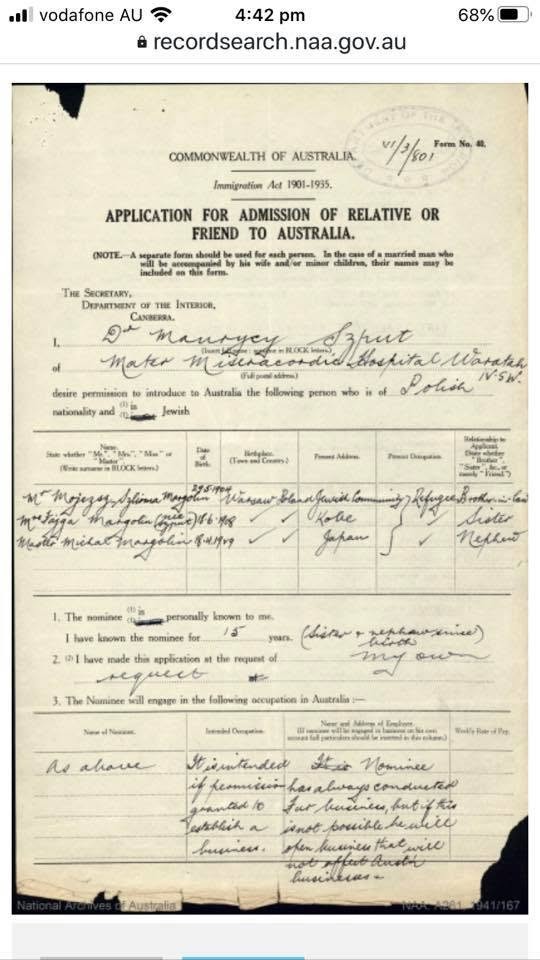 vodafone AU
4:42 pm
68%
recordsearch.naa.gov.au
VI/3/801
Form No. 40.
COMMONWEALTH OF AUSTRALIA.
Immigration Act 1901-1935.
APPLICATION FOR ADMISSION OF RELATIVE OR
FRIEND TO AUSTRALIA.
(NOTE.—A separate form should be used for each person. In the case of a married man who
will be accompanied by his wife and/or minor children, their names may be
included on this form.
THE SECRETARY,
DEPARTMENT OF THE INTERIOR,
CANBERRA.
I, Dr Maurycy Szput
(Insert full name: surname in BLOCK letters.)
of Mater Miseracordia Hospital Waratah
N.S.W.
(Full postal address.)
desire permission to introduce to Australia the following person who is of Polish
nationality and (1) is Jewish
Name. State whether "Mr.", "Mrs.", "Miss" or "Master" (Write surname in BLOCK letters.)
Date of Birth.
Birthplace. (Town and Country.)
Present Address.
Present Occupation.
Relationship to Applicant. (State whether "Brother", "Sister", &c., or merely "Friend.")
Mr Mojzesz Szlioma Margolin 29.5.1904 Warsaw Poland Jewish Community Refugee Brother-in-law
Mrs Fajga Margolin (nee Szput) 18.6.1908 ✓ ✓ Kobe ✓ Sister
Master Michal Margolin 18.4.1929 ✓ ✓ Japan ✓ Nephew
1. The nominee (1) is personally known to me.
I have known the nominee for 15 years. (Sister & nephew since
birth)
2. (2) I have made this application at the request of my own
request
3. The Nominee will engage in the following occupation in Australia :—
Name of Nominee.
Intended Occupation.
Name and Address of Employer.
(If nominee will be engaged in business on his own account full particulars should be inserted in this column.)
Weekly Rate of Pay.
As above
It is intended
if permission
granted to
establish a
business.
It is Nominee
has always conducted
Fur business, but if this
is not possible he will
open business that will
not affect Austn
businesses.
National Archives of Australia
NAA: A261, 1941/167